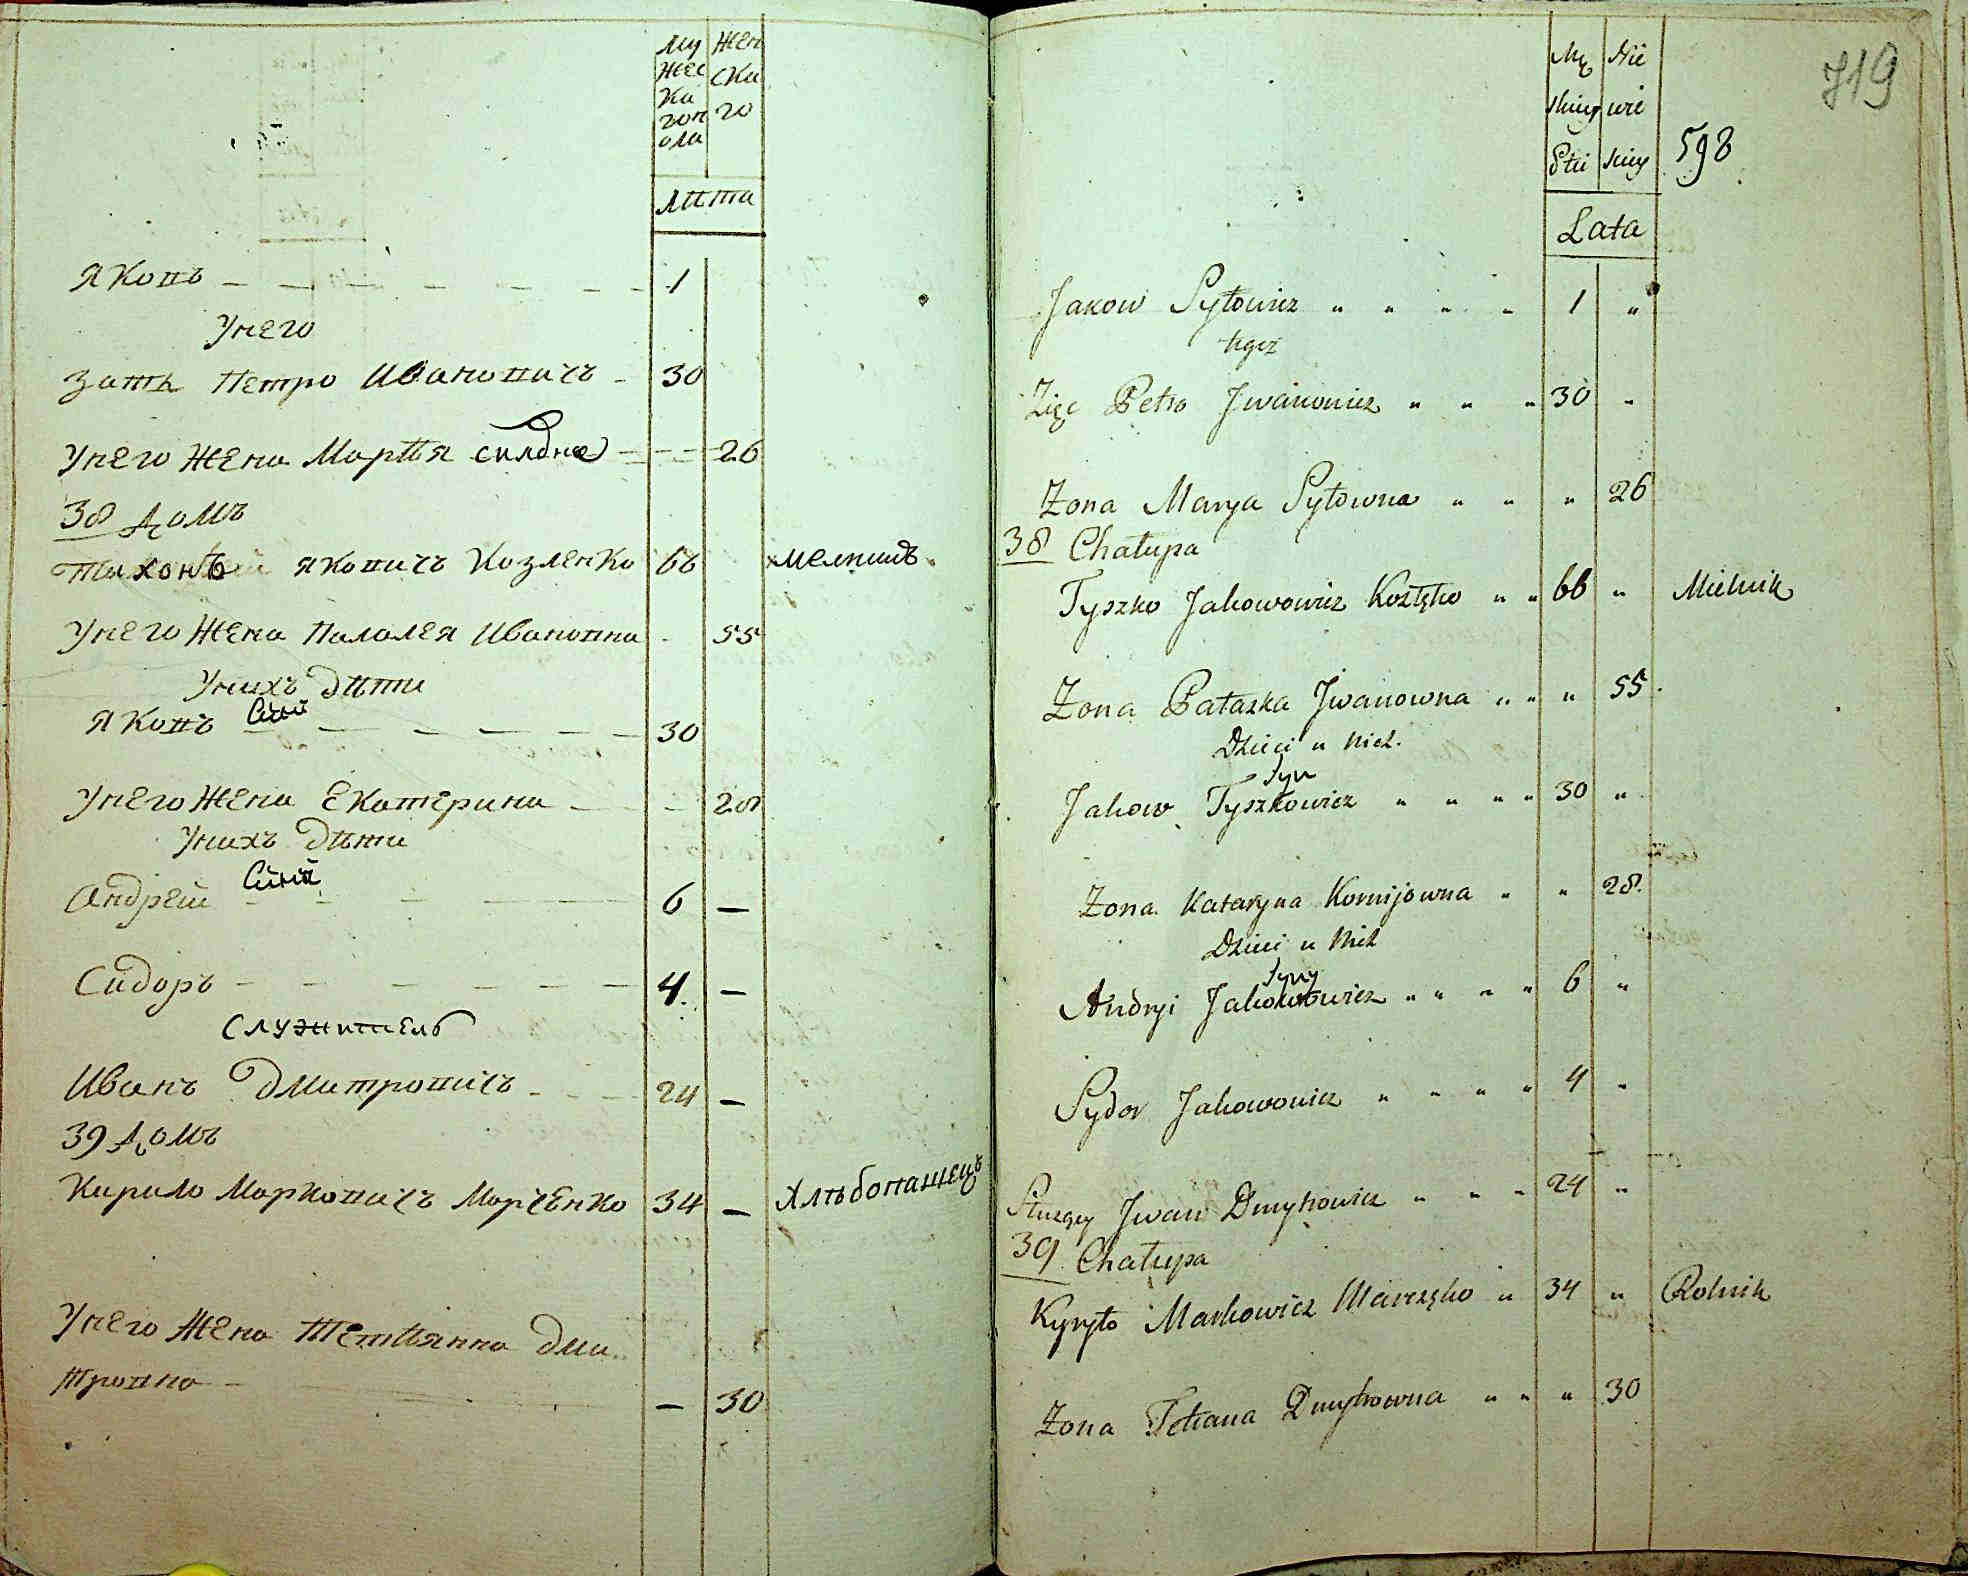 Му Жен
жес ска
ка го
гоп
ола
Лѣта
Яковъ 1
Унего
Зять Петро Ивановичъ 30
Унего Жена Марѣя 26
38 Домъ
Тихонъ Яковичъ Козленко 66 мелникъ
Унего Жена Палалея Ивановна 55
Унихъ дѣти
Сынъ
Яковъ 30
Унего Жена Екатерина 28
Унихъ дѣти
Сыны
Андрей 6 —
Сидоръ 4 —
Служитель
Иванъ Дмитровичъ 24 —
39 Домъ
Кирило Марковичъ Марченко 34 — Хлѣбопашецъ
Унего Жена Тетѣянна Дми
тровна — 30
719
Mę Nie
skiey wie
Płci skiey
598
Lata
Jakow Sytowicz " " " " 1 "
tegoż
Zięć Petro Jwanowicz " " " 30 "
Żona Marya Sytowna " " " 26
38 Chałupa
Tyszko Jakowowicz Kozłęko " " 66 " Mielnik
Żona Pałazka Jwanowna " " " 55
Dzieci u nich.
Syn
Jakow Tyszkowicz " " " " 30 "
Żona Kataryna Kornijowna " " 28.
Dzieci u nich
Syny
Andryi Jakowowicz " " " " 6 "
Sydor Jakowowicz " " " " 4 "
Służący Jwan Dmytrowicz " " " 24 "
39 Chałupa
Kyryło Markowicz Marczęko " 34 " Rolnik
Żona Tetiana Dmytrowna " " " 30